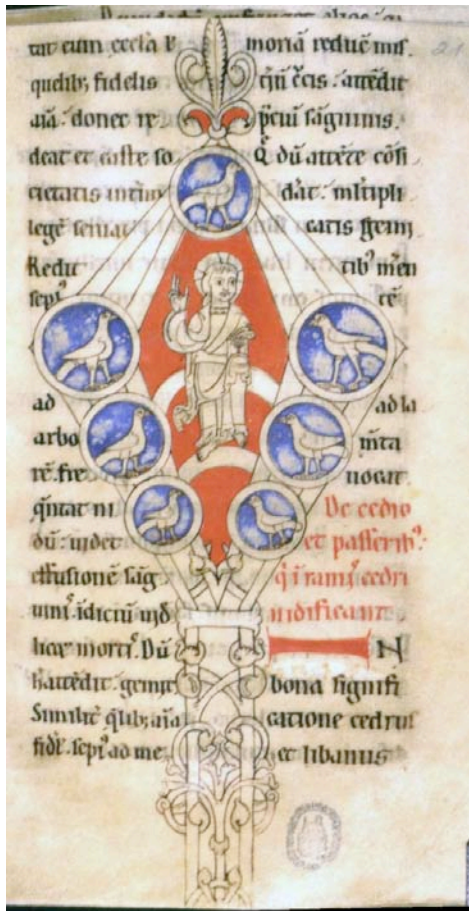 tat cum eccl̄a
quelib; fidelis
aīa. donec re
deat et caste so
cietatis intim
legē seruat
Redit
sepi⁹
ad
arbo
rē. fre
q̄ntat ni
dū. uidet
effusionē sāg
idiciū uid
mortis. Dū
attēdit. gemit
Similit̄ q̄lib; aīa
fidel. sepi⁹ ad me
moriā
attēdit
p̄ciū sāguinis.
Q̄ dū attēte cōsi
dat. mltipli
catis
tib⁹ men
tē
ad la
m̄ta
uocat
De cedro
et passerib⁹.
q̄ i ramis cedri
nidificant
IN
bona signifi
catione cedrus
et libanus